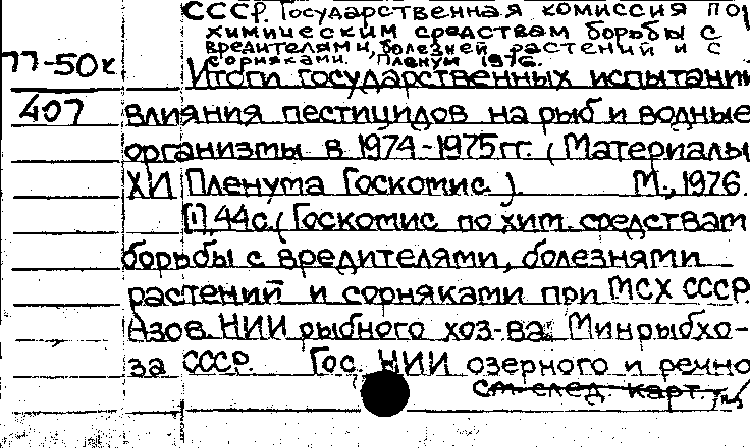 СССР. Государственная комиссия по
химическим средствам борьбы с
вредителями, болезней растений и с
сорняками. Пленум 1976.
77-50к Итоги государственных испытаний
407 влияния пестицидов на рыб и водные
организмы в 1974-1975гг. (Материалы
XИ Пленума Госкомис.). М., 1976.
[1], 44с. (Госкомис по хим. средствам
борьбы с вредителями, болезнями
растений и сорняками при МСХ СССР.
Азов. НИИ рыбного хоз-ва Минрыбхо-
за СССР. Гос. НИИ озерного и речно
см. след. карт.